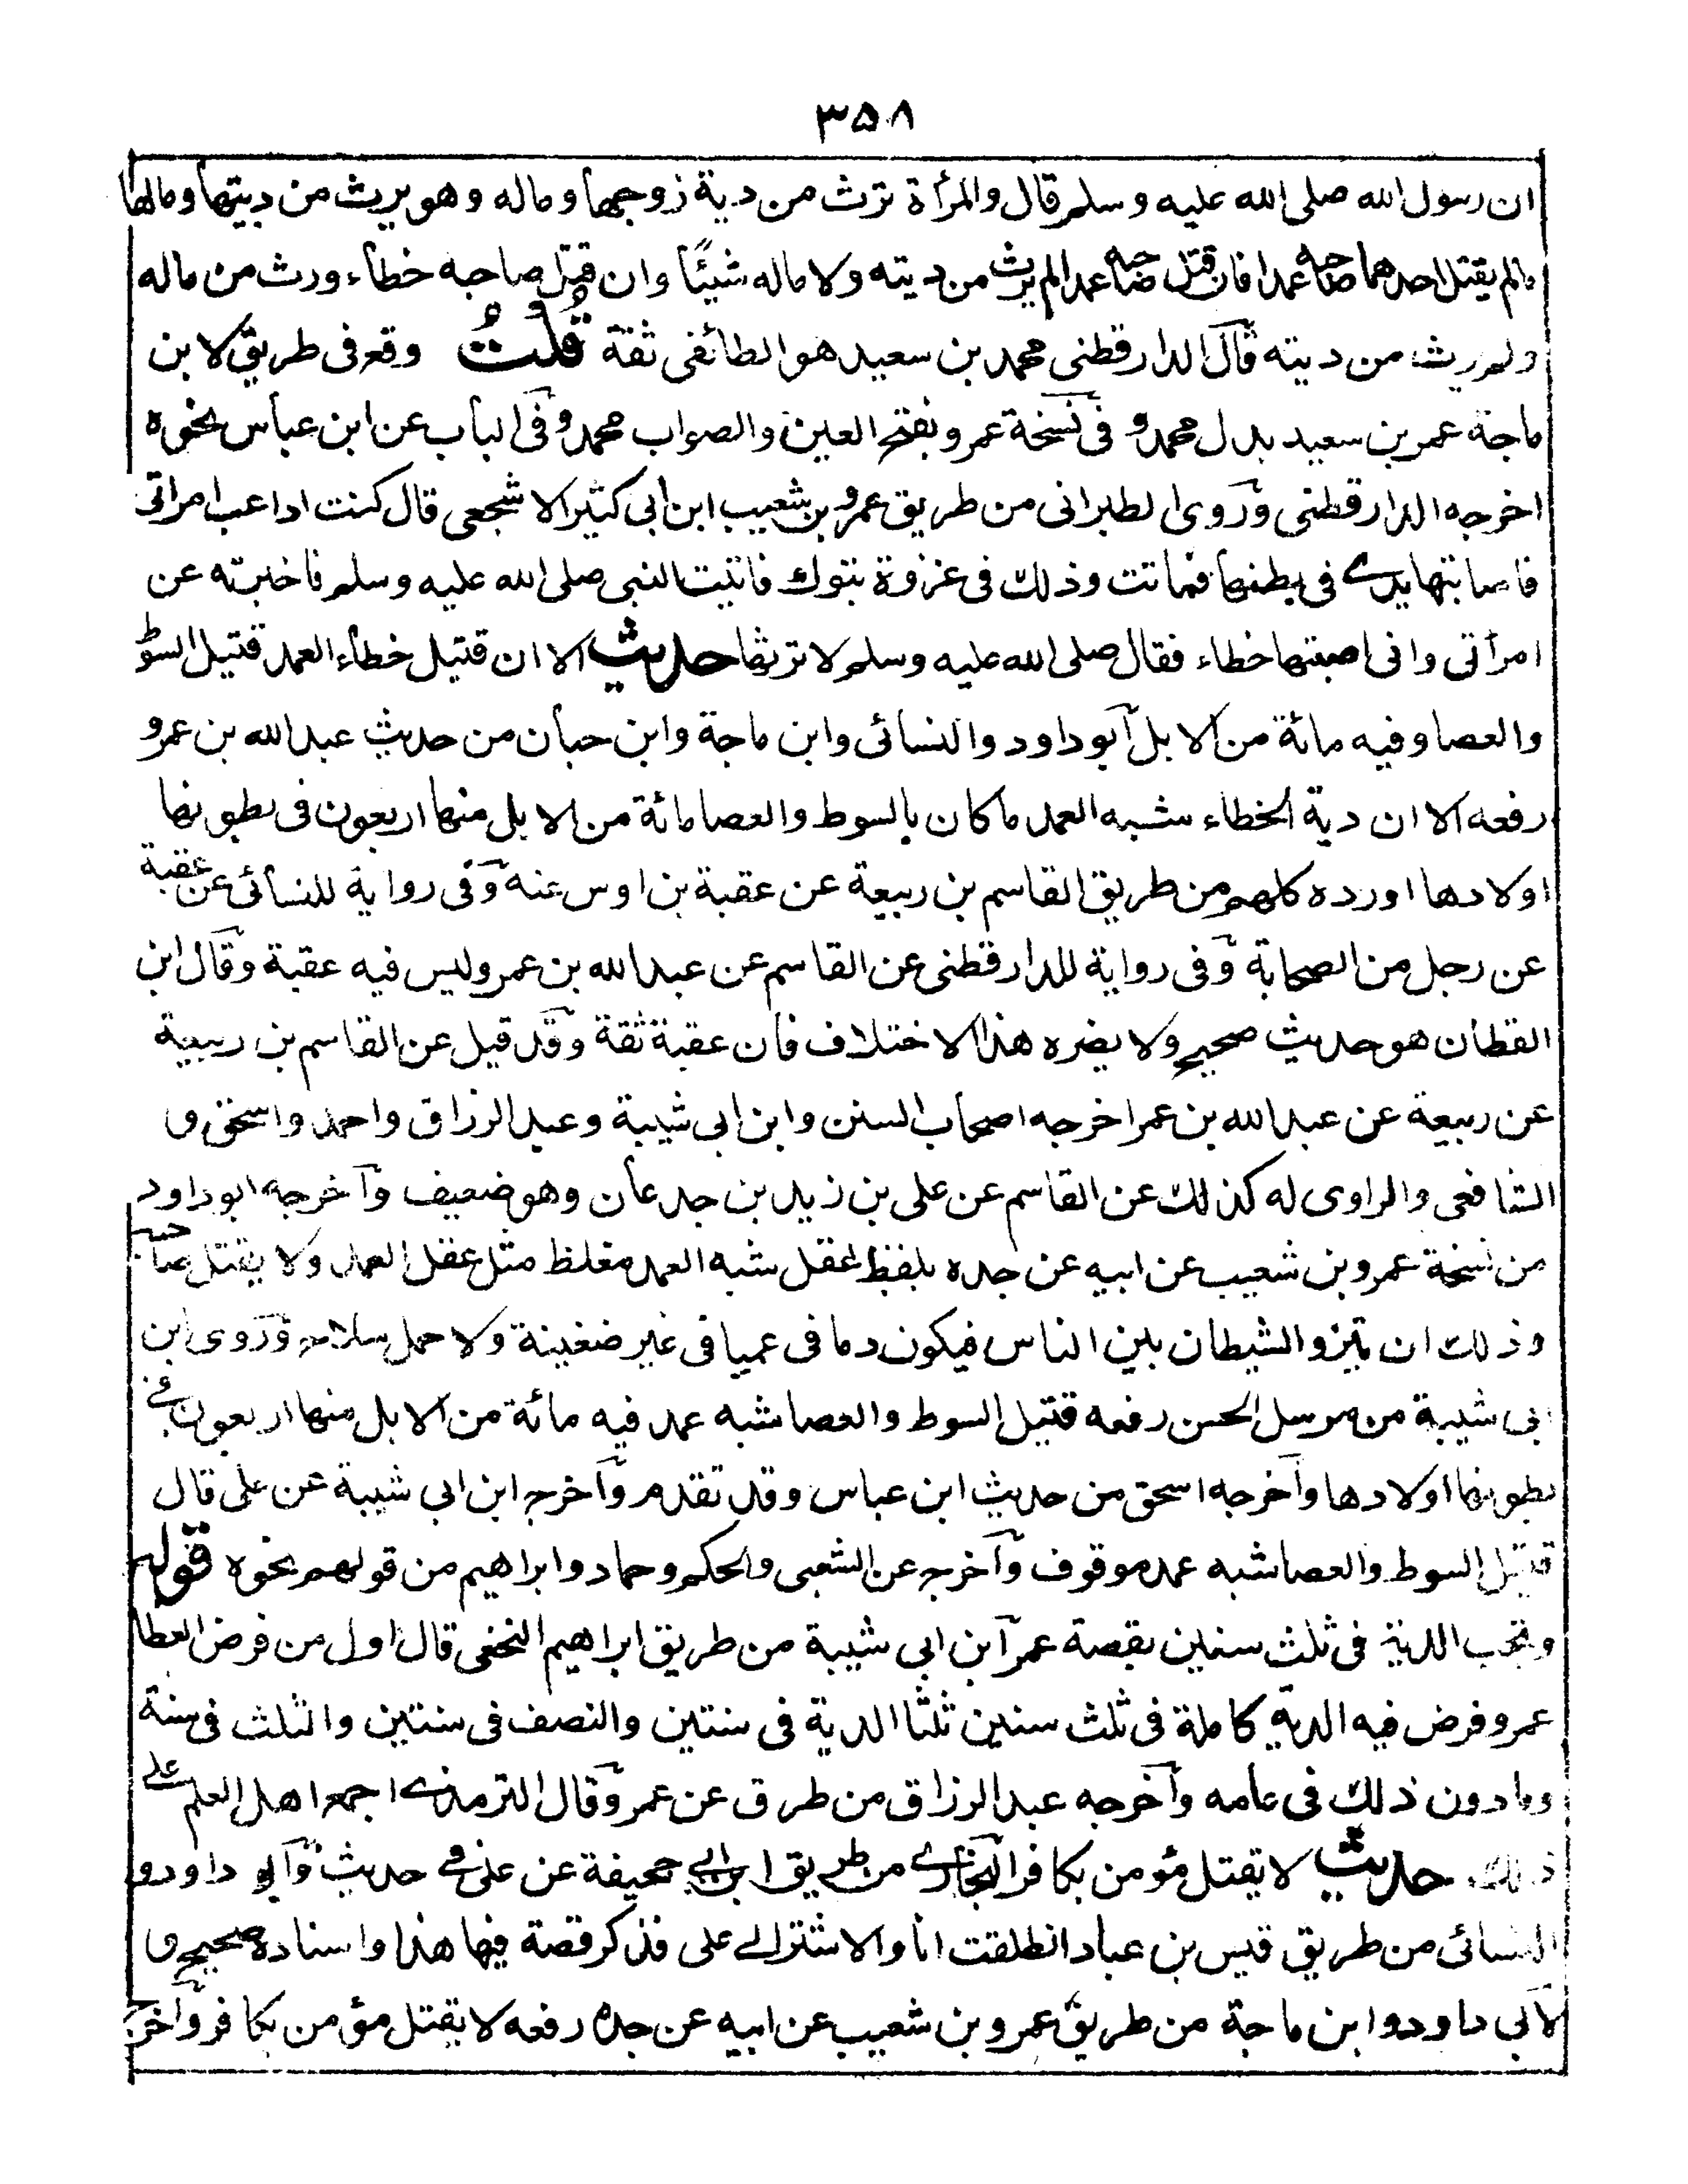 ٣٥٨
ان رسول الله صلى الله عليه وسلم قال والمرأة ترث من دية زوجها وماله وهو يرث من ديتها ومالها
مالم يقتل احدهما صاحبه عمدا فان قتل صاحبه عمدا لم يرث من ديته ولا ماله شيئًا وان قتل صاحبه خطاء ورث من ماله
ولم يرث من ديته قال الدارقطنى محمد بن سعيد هو الطائفى ثقة قُلْتُ وقع فى طريق لابن
ماجة عمر بن سعيد بدل محمد و فى نسخة عمرو بفتح العين والصواب محمد وفى الباب عن ابن عباس نحوه
اخرجه الدارقطنى وروى الطبرانى من طريق عمرو بن شعيب ابن ابى كثير الاشجعى قال كنت اداعب امراتى
فاصابتها يدى فى بطنها فماتت وذلك فى غزوة تبوك فاتيت النبى صلى الله عليه وسلم فاخبرته عن
امرأتى وانى اصبتها خطاء فقال صلى الله عليه وسلم لا ترثها حديث الا ان قتيل خطاء العمد قتيل السوط
والعصا وفيه مائة من الابل ابو داود والنسائى وابن ماجة وابن حبان من حديث عبد الله بن عمرو
رفعه الا ان دية الخطاء شبه العمد ما كان بالسوط والعصا مائة من الابل منها اربعون فى بطونها
اولادها اورده كلهم من طريق القاسم بن ربيعة عن عقبة بن اوس عنه وفى رواية للنسائى عن عقبة
عن رجل من الصحابة وفى رواية للدارقطنى عن القاسم عن عبد الله بن عمر وليس فيه عقبة وقال ابن
القطان هو حديث صحيح ولا يضره هذا الاختلاف فان عقبة ثقة وقد قيل عن القاسم بن ربيعة
عن ربيعة عن عبد الله بن عمر اخرجه اصحاب السنن وابن ابى شيبة وعبد الرزاق واحمد واسحق و
الشافعى والراوى له كذلك عن القاسم عن على بن زيد بن جدعان وهو ضعيف واخرجه ابو داود
من نسخة عمرو بن شعيب عن ابيه عن جده بلفظ عقل شبه العمد مغلظ مثل عقل العمد ولا يقتل صاحبه
وذلك ان ينزو الشيطان بين الناس فيكون دما فى عميا فى غير ضغينة ولا حمل سلاح وروى ابن
ابى شيبة من مرسل الحسن رفعه قتيل السوط والعصا شبه عمد فيه مائة من الابل منها اربعون فى
بطونها اولادها واخرجه اسحق من حديث ابن عباس وقد تقدم واخرج ابن ابى شيبة عن على قال
قتيل السوط والعصا شبه عمد موقوف واخرج عن الشعبى والحكم وحماد وابراهيم من قولهم نحوه قوله
وتجب الدية فى ثلث سنين بقصة عمر ابن ابى شيبة من طريق ابراهيم النخعى قال اول من فرض العطا
عمر وفرض فيه الدية كاملة فى ثلث سنين ثلثا الدية فى سنتين والنصف فى سنتين والثلث فى سنة
وما دون ذلك فى عامه واخرجه عبد الرزاق من طرق عن عمر وقال الترمذى اجمع اهل العلم على
ذلك حديث لا يقتل مؤمن بكافر البخارى من طريق ابى جحيفة عن على فى حديث وابو داود و
النسائى من طريق قيس بن عباد انطلقت انا والاشتر الى على فذكر قصة فيها هذا واسناده صحيح و
لابى داود وابن ماجة من طريق عمرو بن شعيب عن ابيه عن جده رفعه لا يقتل مؤمن بكافر واخرج